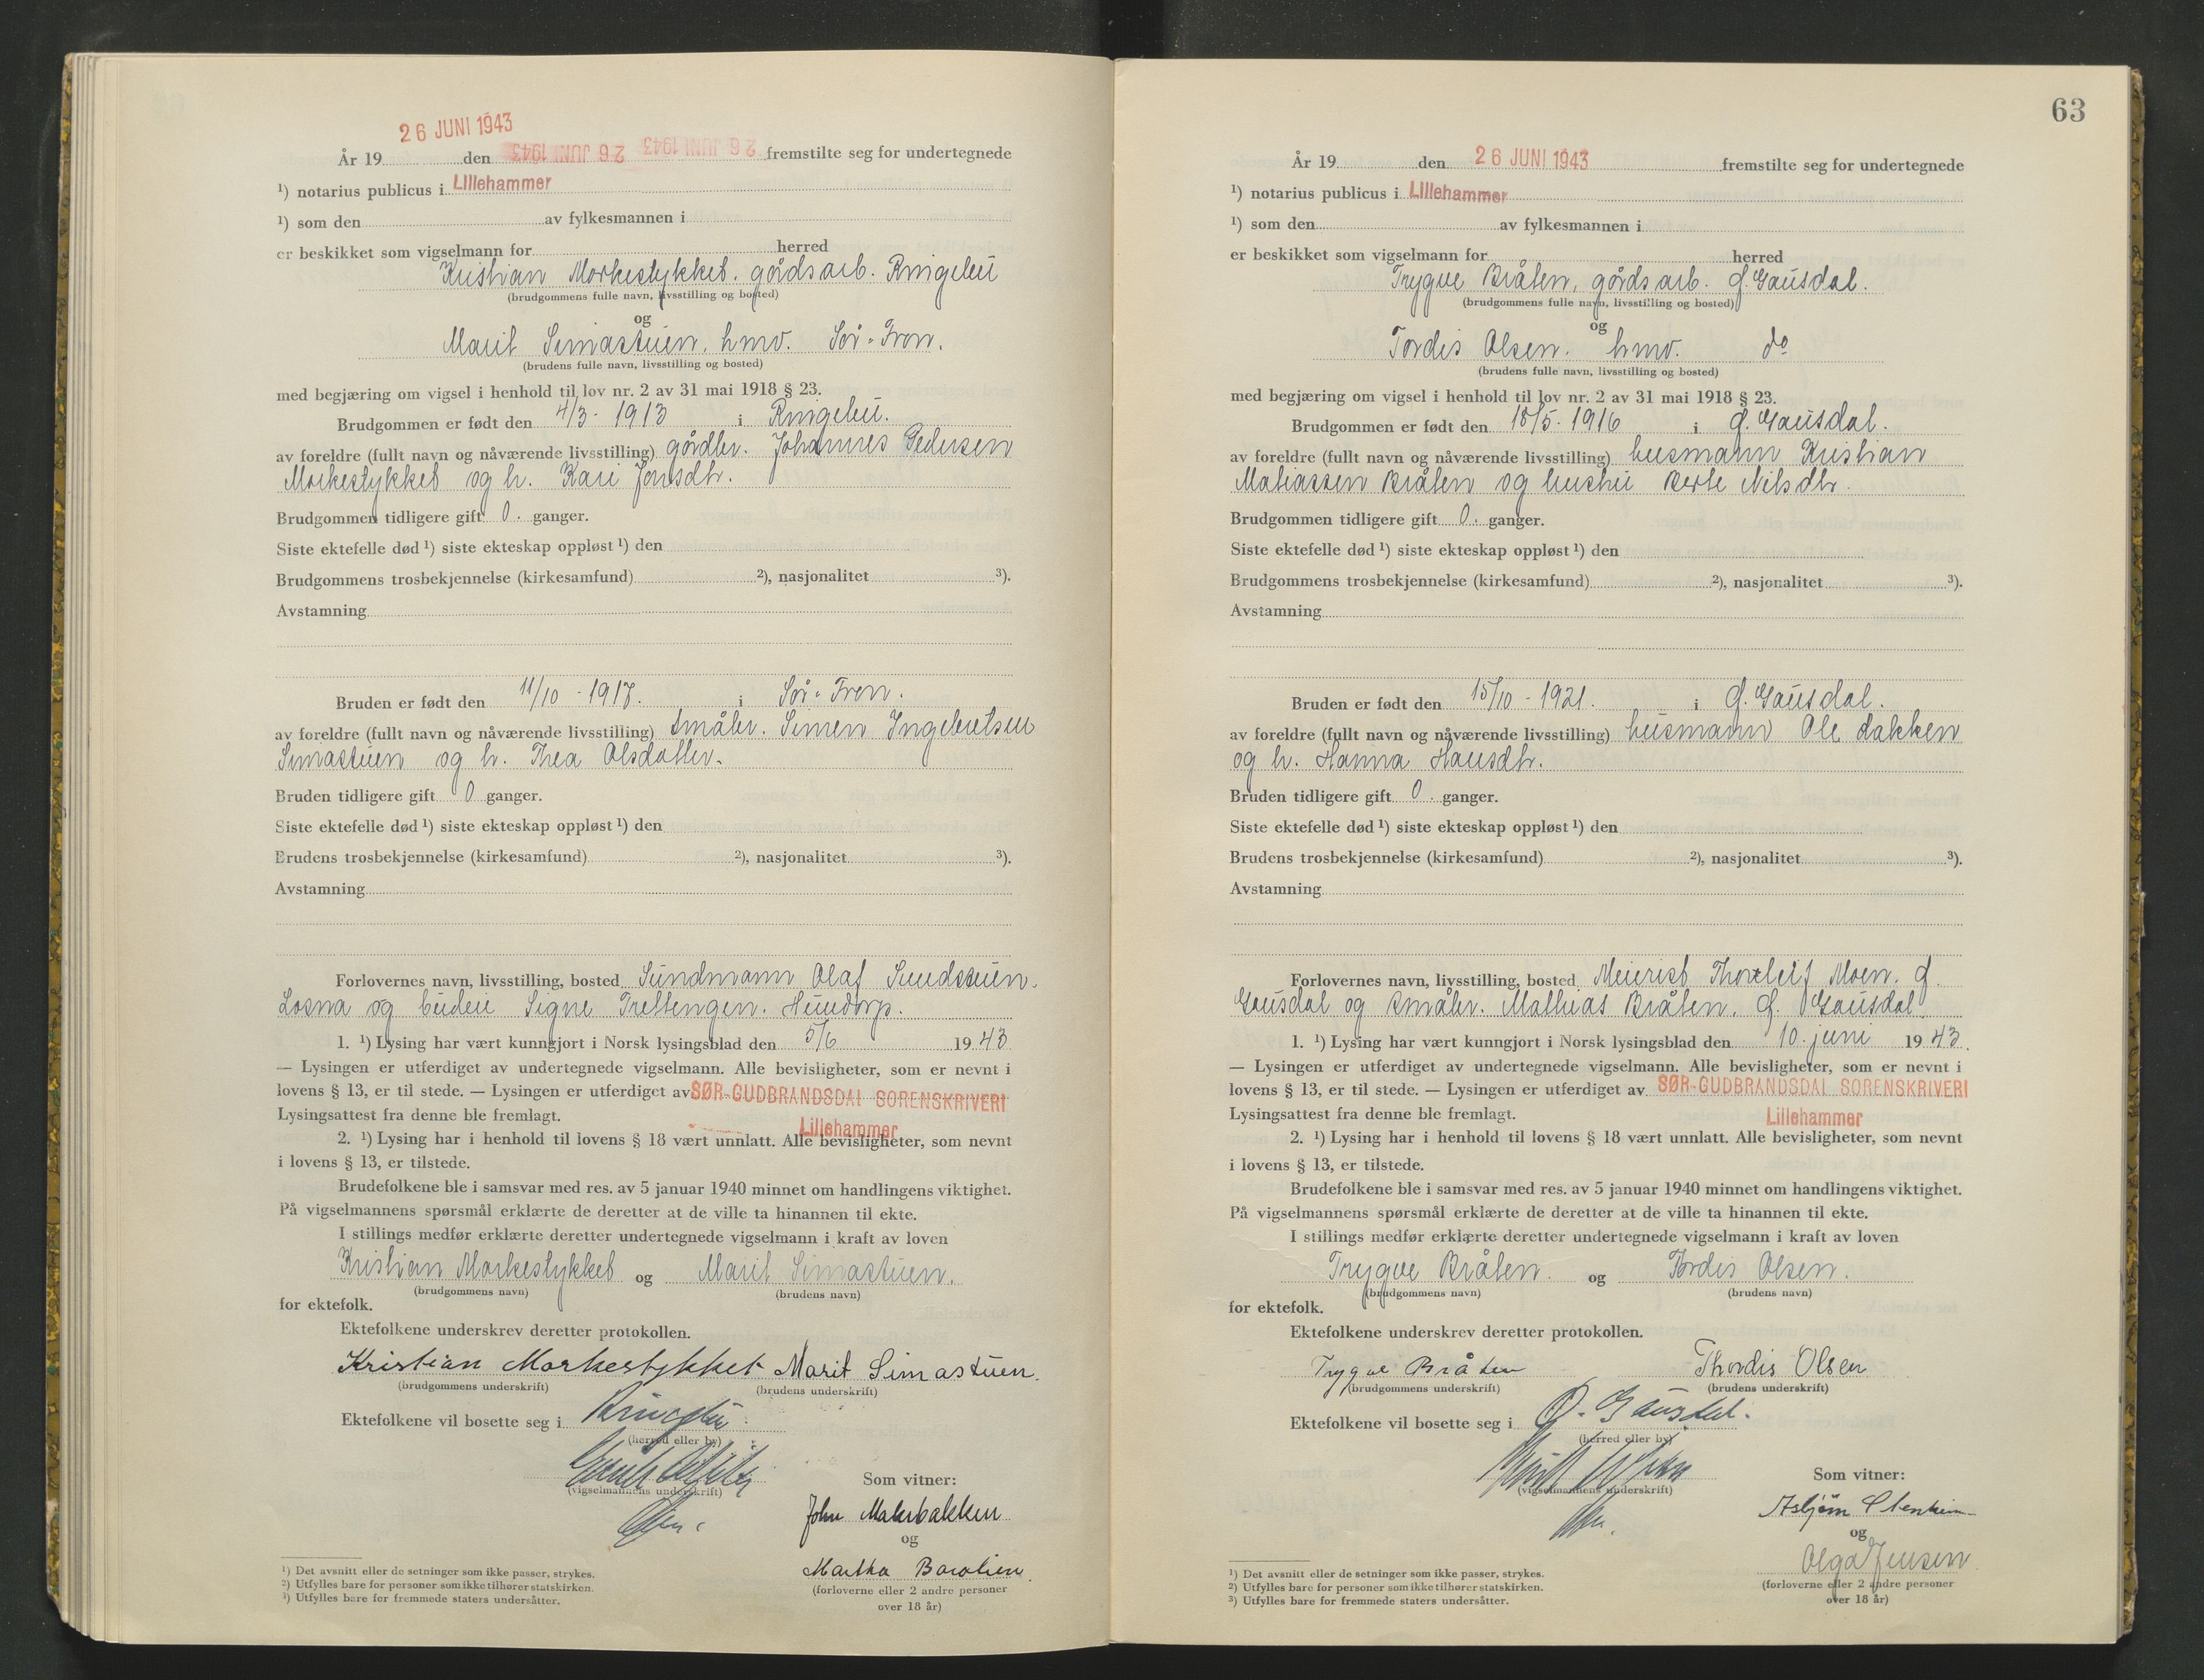 26 JUNI 1943
År 19 den 26 JUNI 1943 26 JUNI 1943 fremstilte seg for undertegnede
¹) notarius publicus i Lillehammer
¹) som den av fylkesmannen i
er beskikket som vigselmann for herred
Kristian Morkestykket. gårdsarb. Ringebu
(brudgommens fulle navn, livsstilling og bosted)
og
Marit Simastuen. hmv. Sør-Fron.
(brudens fulle navn, livsstilling og bosted)
med begjæring om vigsel i henhold til lov nr. 2 av 31 mai 1918 § 23.
Brudgommen er født den 4/3- 1913 i Ringebu.
av foreldre (fullt navn og nåværende livsstilling) gårdbr. Johannes Pedersen
Morkestykket og h. Kari Jonsdtr.
Brudgommen tidligere gift 0. ganger.
Siste ektefelle død ¹) siste ekteskap oppløst ¹) den
Brudgommens trosbekjennelse (kirkesamfund) ²), nasjonalitet ³).
Avstamning
Bruden er født den 11/10 - 1917. i Sør-Fron.
av foreldre (fullt navn og nåværende livsstilling) småbr. Simen Ingebretsen
Simastuen og h. Thea Olsdatter.
Bruden tidligere gift 0 ganger.
Siste ektefelle død ¹) siste ekteskap oppløst ¹) den
Brudens trosbekjennelse (kirkesamfund) ²), nasjonalitet ³).
Avstamning
Forlovernes navn, livsstilling, bosted Sundmann Olaf Sundstuen.
Losna og budeie Signe Trettengen. Hundorp.
1. ¹) Lysing har vært kunngjort i Norsk lysingsblad den 5/6 19 43
— Lysingen er utferdiget av undertegnede vigselmann. Alle bevisligheter, som er nevnt i
lovens § 13, er til stede. — Lysingen er utferdiget av SØR-GUDBRANDSDAL SORENSKRIVERI
Lysingsattest fra denne ble fremlagt.
Lillehammer
2. ¹) Lysing har i henhold til lovens § 18 vært unnlatt. Alle bevisligheter, som nevnt
i lovens § 13, er tilstede.
Brudefolkene ble i samsvar med res. av 5 januar 1940 minnet om handlingens viktighet.
På vigselmannens spørsmål erklærte de deretter at de ville ta hinannen til ekte.
I stillings medfør erklærte deretter undertegnede vigselmann i kraft av loven
Kristian Morkestykket og Marit Simastuen.
(brudgommens navn) (brudens navn)
for ektefolk.
Ektefolkene underskrev deretter protokollen.
Kristian Morkestykket Marit Simastuen.
(brudgommens underskrift) (brudens underskrift)
Ektefolkene vil bosette seg i Ringebu.
(herred eller by)
(vigselmannens underskrift)
Som vitner:
John
og
Martha
(forloverne eller 2 andre personer
over 18 år)
¹) Det avsnitt eller de setninger som ikke passer, strykes.
²) Utfylles bare for personer som ikke tilhører statskirken.
³) Utfylles bare for fremmede staters undersåtter.
63
År 19 den 26 JUNI 1943 fremstilte seg for undertegnede
¹) notarius publicus i Lillehammer
¹) som den av fylkesmannen i
er beskikket som vigselmann for herred
Trygve Bråten, gårdsarb. Ø. Gausdal.
(brudgommens fulle navn, livsstilling og bosted)
og
Tordis Olsen. hmv. do
(brudens fulle navn, livsstilling og bosted)
med begjæring om vigsel i henhold til lov nr. 2 av 31 mai 1918 § 23.
Brudgommen er født den 18/5- 1916 i Ø. Gausdal.
av foreldre (fullt navn og nåværende livsstilling) husmann Kristian
Matiassen Bråten og hustru Berte Nilsdtr.
Brudgommen tidligere gift 0. ganger.
Siste ektefelle død ¹) siste ekteskap oppløst ¹) den
Brudgommens trosbekjennelse (kirkesamfund) ²), nasjonalitet ³).
Avstamning
Bruden er født den 15/10 - 1921. i Ø. Gausdal.
av foreldre (fullt navn og nåværende livsstilling) husmann Ole Bakken
og h. Hanna Hansdtr.
Bruden tidligere gift 0. ganger.
Siste ektefelle død ¹) siste ekteskap oppløst ¹) den
Brudens trosbekjennelse (kirkesamfund) ²), nasjonalitet ³).
Avstamning
Forlovernes navn, livsstilling, bosted Meierist Thorleif Moen. Ø.
Gausdal og småbr. Mathias Bråten, Ø. Gausdal.
1. ¹) Lysing har vært kunngjort i Norsk lysingsblad den 10. juni 19 43.
— Lysingen er utferdiget av undertegnede vigselmann. Alle bevisligheter, som er nevnt i
lovens § 13, er til stede. — Lysingen er utferdiget av SØR-GUDBRANDSDAL SORENSKRIVERI
Lysingsattest fra denne ble fremlagt. Lillehammer
2. ¹) Lysing har i henhold til lovens § 18 vært unnlatt. Alle bevisligheter, som nevnt
i lovens § 13, er tilstede.
Brudefolkene ble i samsvar med res. av 5 januar 1940 minnet om handlingens viktighet.
På vigselmannens spørsmål erklærte de deretter at de ville ta hinannen til ekte.
I stillings medfør erklærte deretter undertegnede vigselmann i kraft av loven
Trygve Bråten. og Tordis Olsen.
(brudgommens navn) (brudens navn)
for ektefolk.
Ektefolkene underskrev deretter protokollen.
Trygve Bråten Thordis Olsen
(brudgommens underskrift) (brudens underskrift)
Ektefolkene vil bosette seg i Ø. Gausdal.
(herred eller by)
(vigselmannens underskrift)
Som vitner:
Asbjørn
og
Olga Jensen
(forloverne eller 2 andre personer
over 18 år)
¹) Det avsnitt eller de setninger som ikke passer, strykes.
²) Utfylles bare for personer som ikke tilhører statskirken.
³) Utfylles bare for fremmede staters undersåtter.